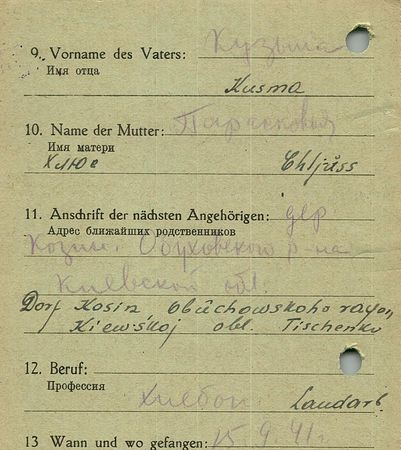 9. Vorname des Vaters: Кузьма
Имя отца
Kusma
10. Name der Mutter:
Имя матери
Хлюс Chljuss
11. Anschrift der nächsten Angehörigen: дер
Адрес ближайших родственников
Козин. Обуховской р-на
Киевской обл.
Dorf Kosin, Obuchowskoho rayon,
Kiewskoj obl. Tischenko
12. Beruf:
Профессия
Landarb.
13 Wann und wo gefangen: 15.9.41г.